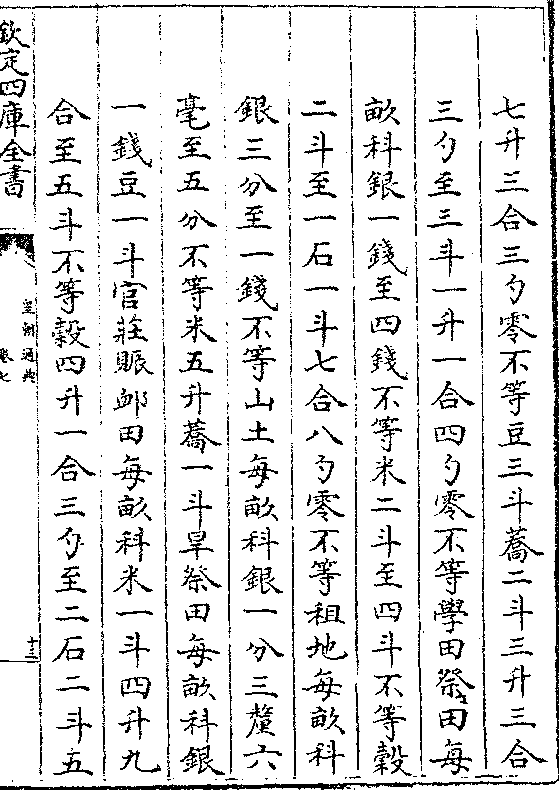 七升三合三勺零不等豆三斗蕎二斗三升三合
三勺至三斗一升一合四勺零不等學田祭田每
畝科銀一錢至四錢不等米二斗至四斗不等穀
二斗至一石一斗七合八勺零不等租地每畝科
銀三分至一錢不等山土每畝科銀一分三釐六
毫至五分不等米五升蕎一斗旱祭田每畝科銀
一錢豆一斗官莊賑䘏田每畝科米一斗四升九
合至五斗不等穀四升一合三勺至二石二斗五
欽定四庫全書
皇朝通典
卷七
十三